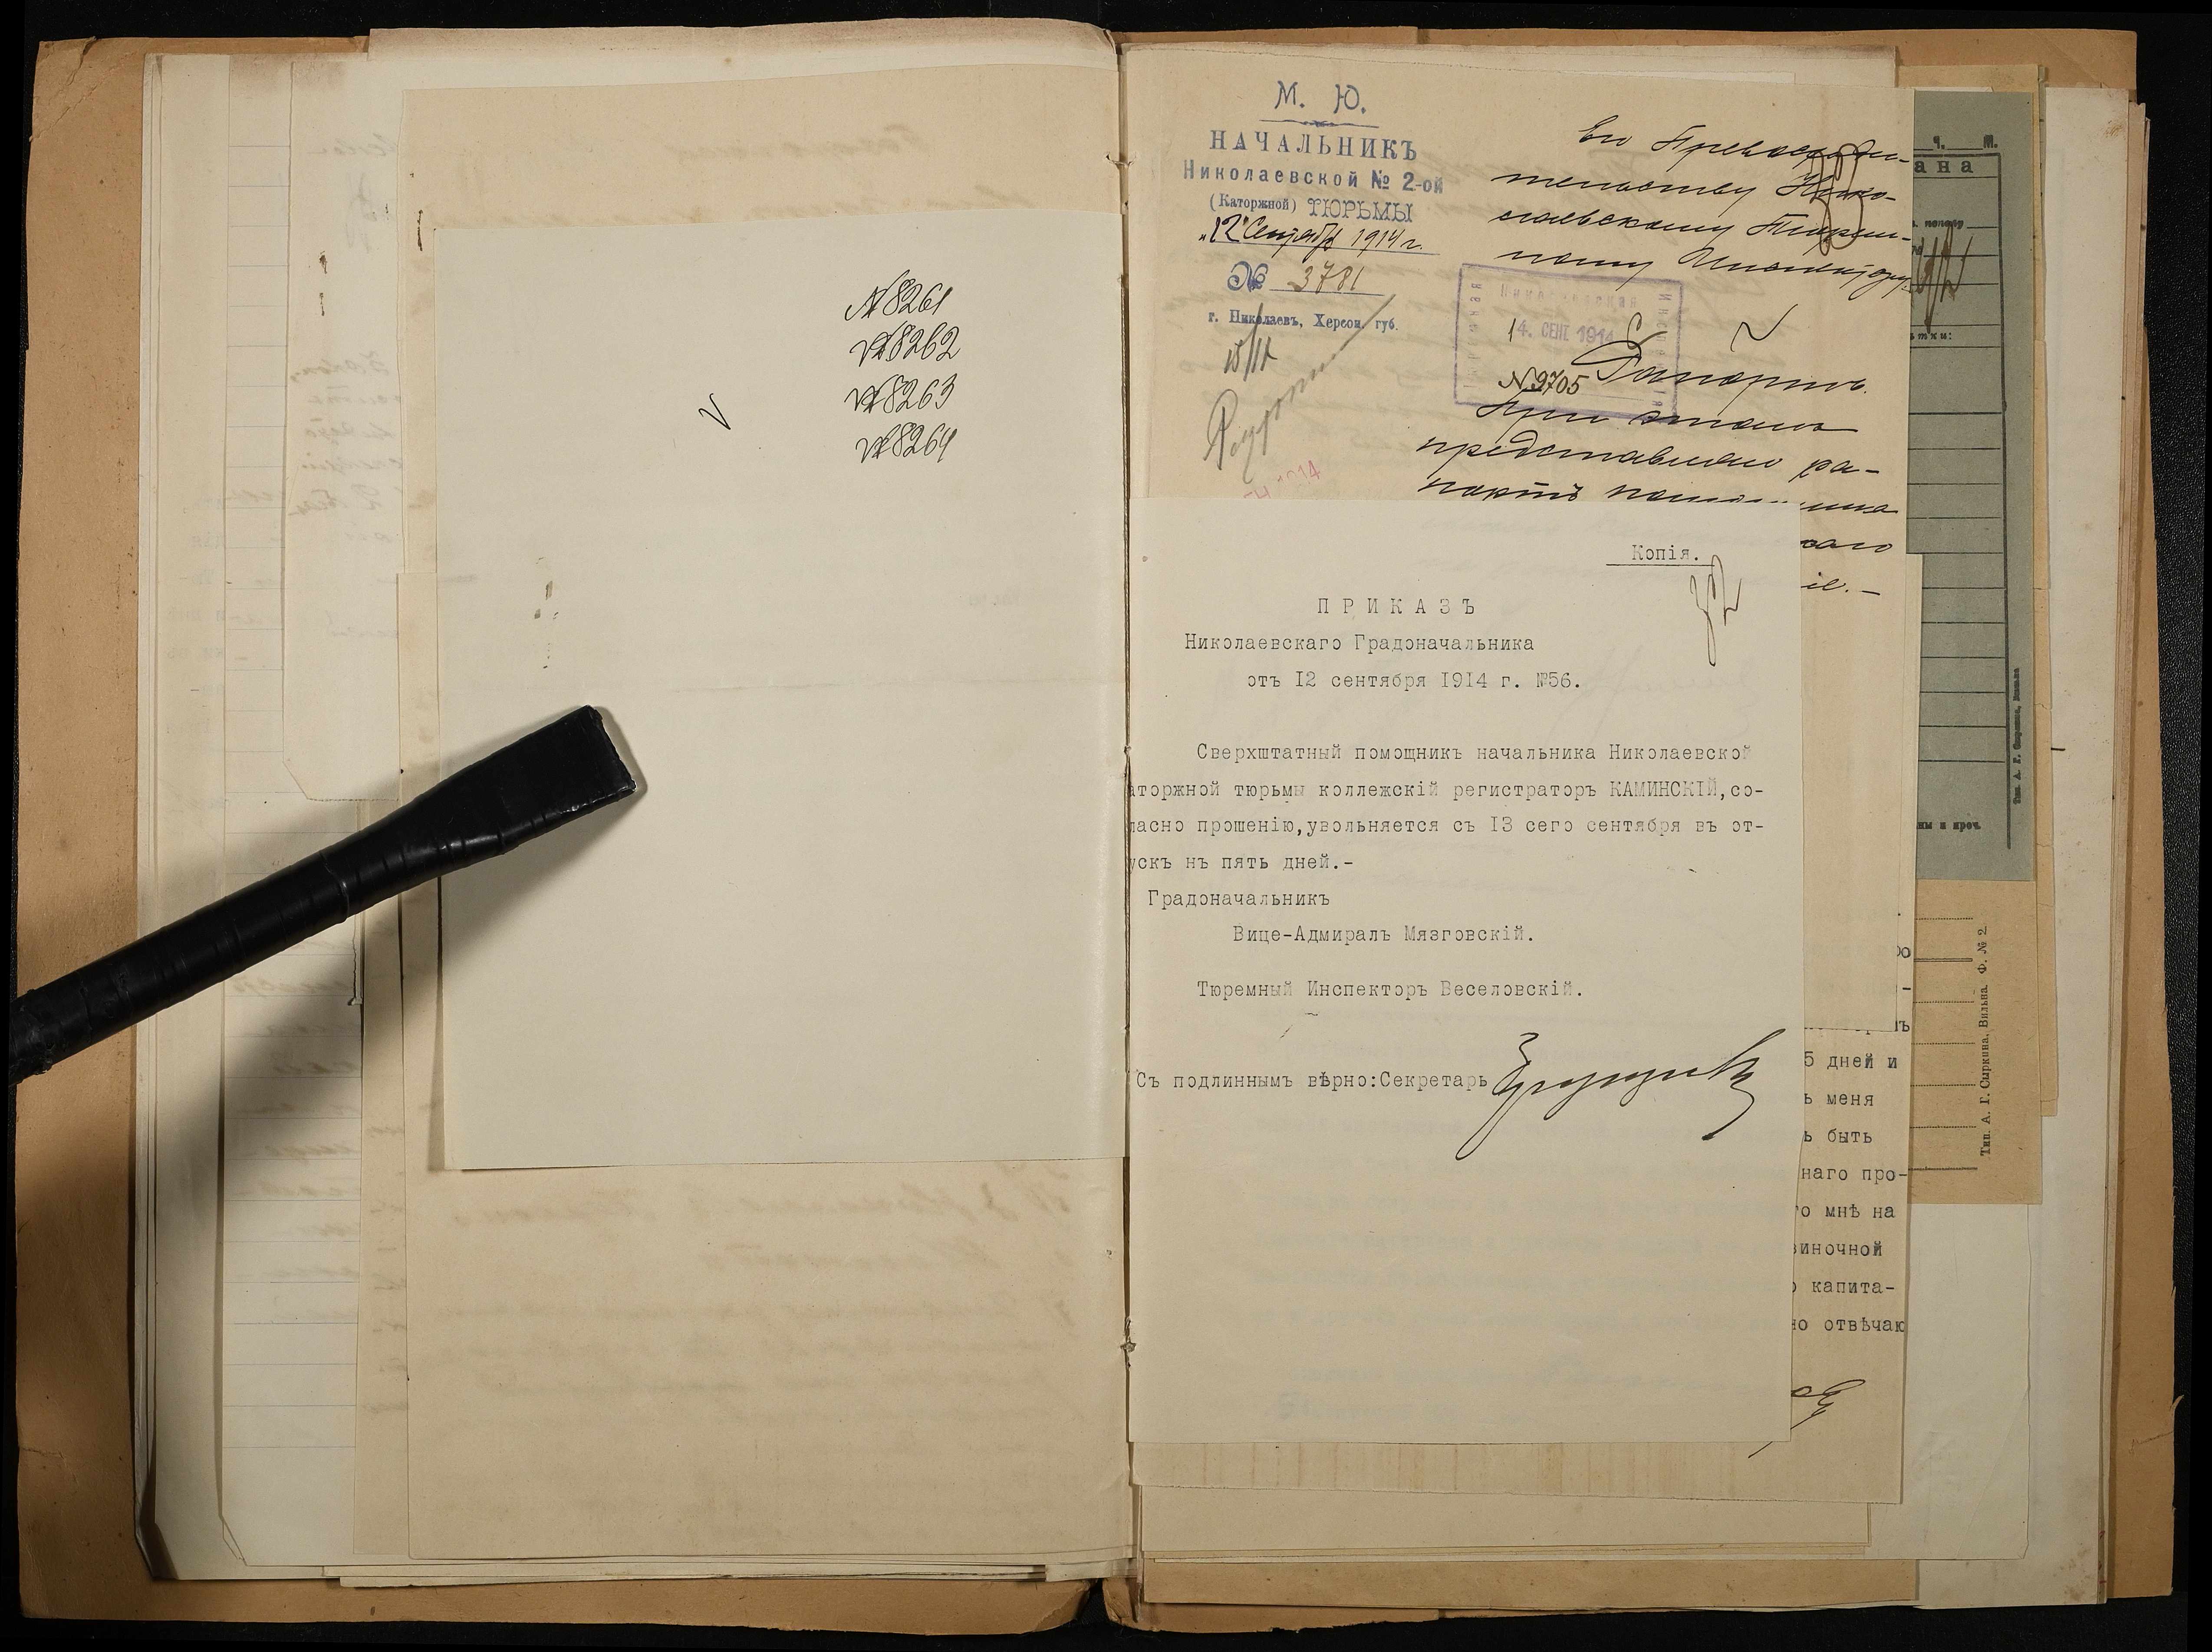 №8261
№8262
№8263
№8264
М. Ю.
НАЧАЛЬНИКЪ
Николаевской № 2-ой
(Каторжной) ТЮРЬМЫ
„12" Сентября 1914 г.
№ 3781
г. Николаевъ, Херсон. губ.
Его Превосходи-
тельству Нико-
лаевскому Тюрем-
ному Инспектору
Николаевская
14. СЕНТ 1914
№9705
Рапортъ.
При этомъ
представляю ра-
портъ
Копія.
32
ПРИКАЗЪ
Николаевскаго Градоначальника
отъ 12 сентября 1914 г. №56.
Сверхштатный помощникъ начальника Николаевской
аторжной тюрьмы коллежскій регистраторъ КАМИНСКІЙ,со-
ласно прошенію,увольняется съ 13 сего сентября въ от-
ускъ нъ пять дней.-
Градоначальникъ
Вице-Адмиралъ Мязговскій.
Тюремный Инспекторъ Веселовскій.
Съ подлиннымъ вѣрно:Секретарь
5 дней и
ь меня
ь быть
наго про-
о мнѣ на
иночной
о капита-
но отвѣчаю
ч. М.
ана
ны и проч.
Тип. А. Г. Сыркина. Вильна. Ф. № 2